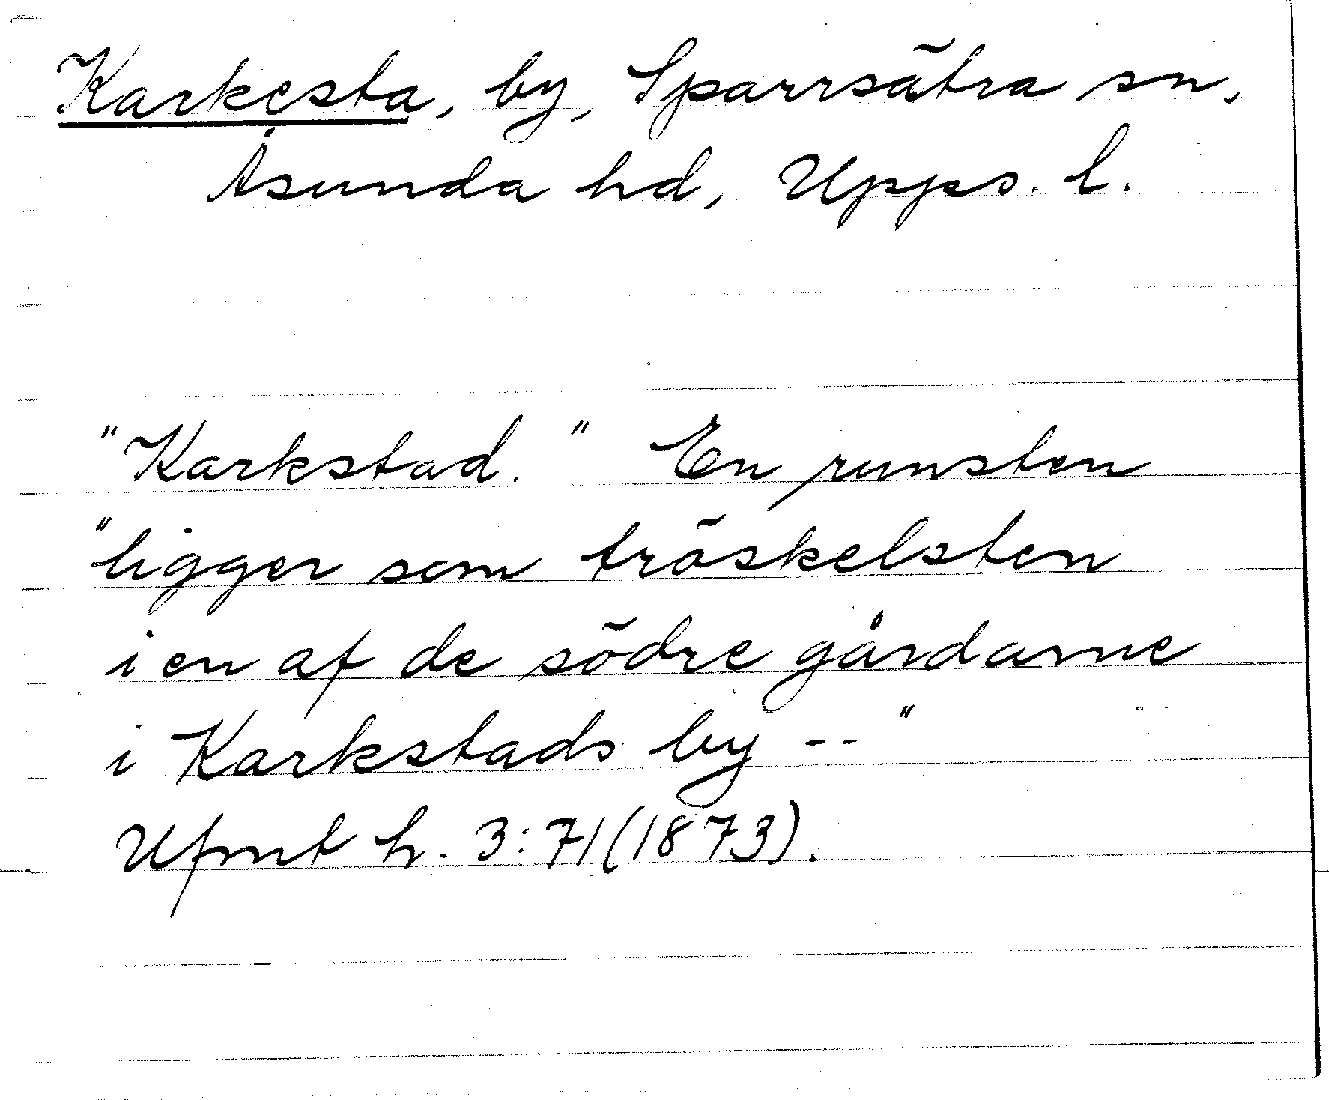 Karkesta, by, Sparrsätra sn,
Åsunda hd, Upps. l.
"Karkstad." En runsten
"ligger som tröskelsten
i en af de södre gårdarne
i Karkstads by --"
Ufmt h. 3:71 (1873).